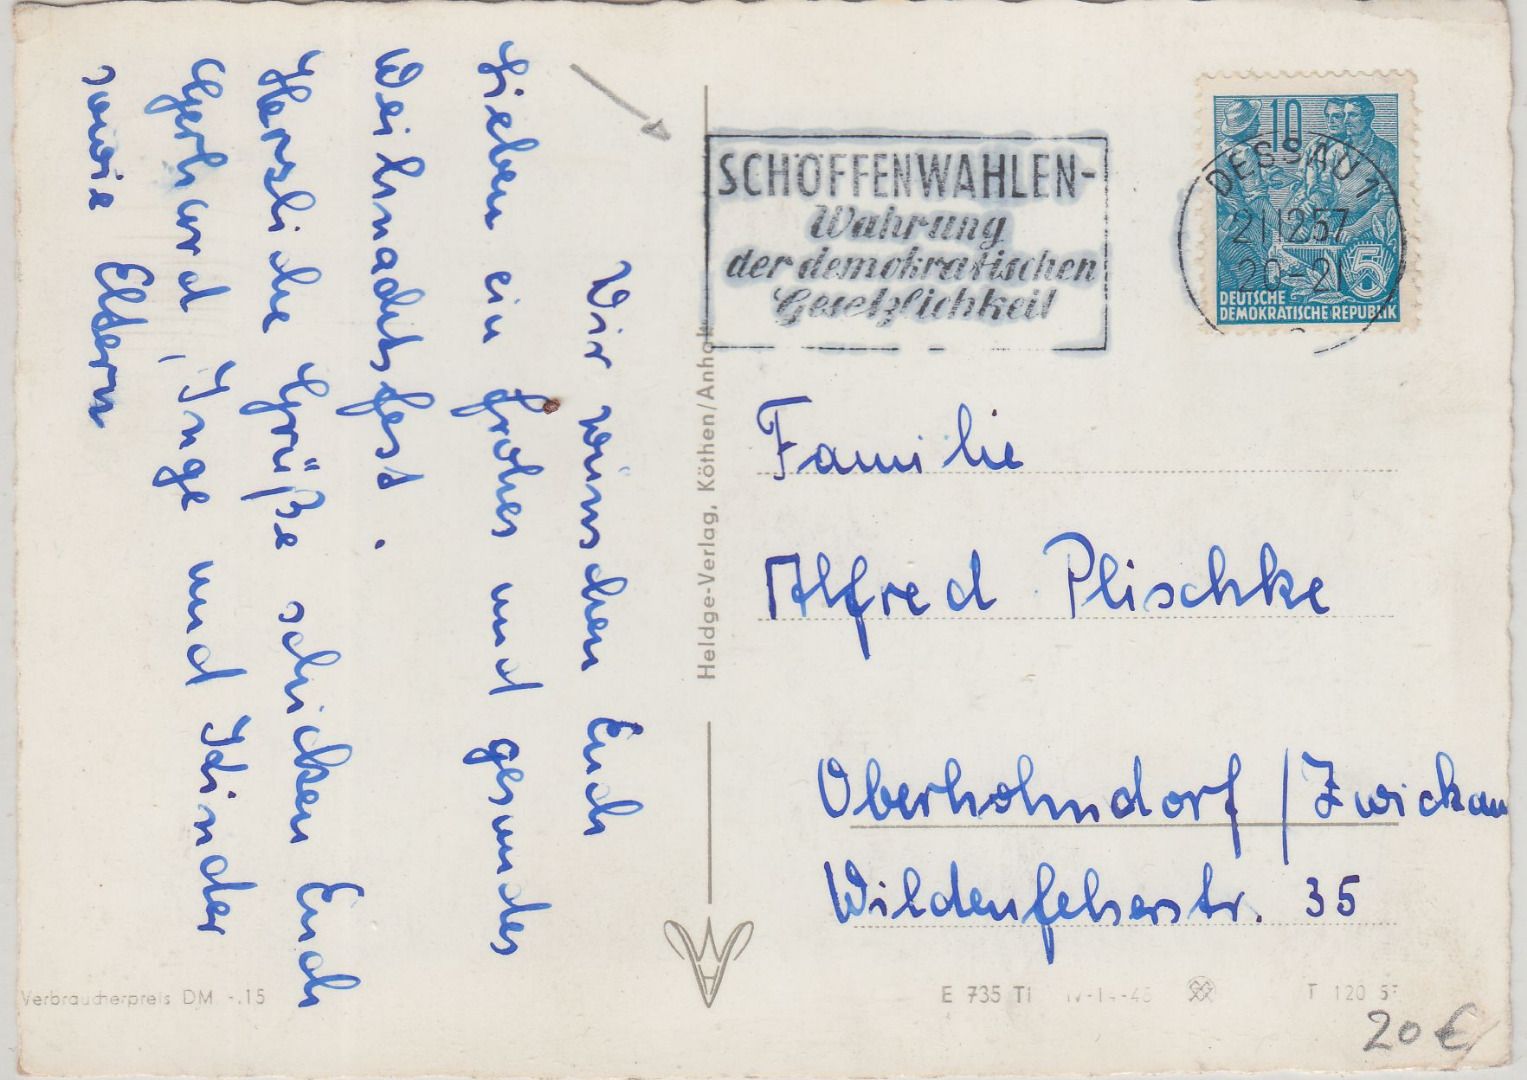 Wir wünschen Euch
Lieben ein frohes und gesundes
Weihnachtsfest.
Herzliche Grüße schicken Euch
Gerhard, Inge und Kinder
sowie Eltern
SCHÖFFENWAHLEN-
Wahrung
der demokratischen
Gesetzlichkeit
10
DESSAU 1
21.12.57
20-21
5
DEUTSCHE
DEMOKRATISCHE REPUBLIK
Heldge-Verlag, Köthen/Anhalt
Familie
Alfred Plischke
Oberhohndorf / Zwickau
Wildenfelserstr. 35
Verbraucherpreis DM -.15
E 735 Ti
T 120 57
20 €